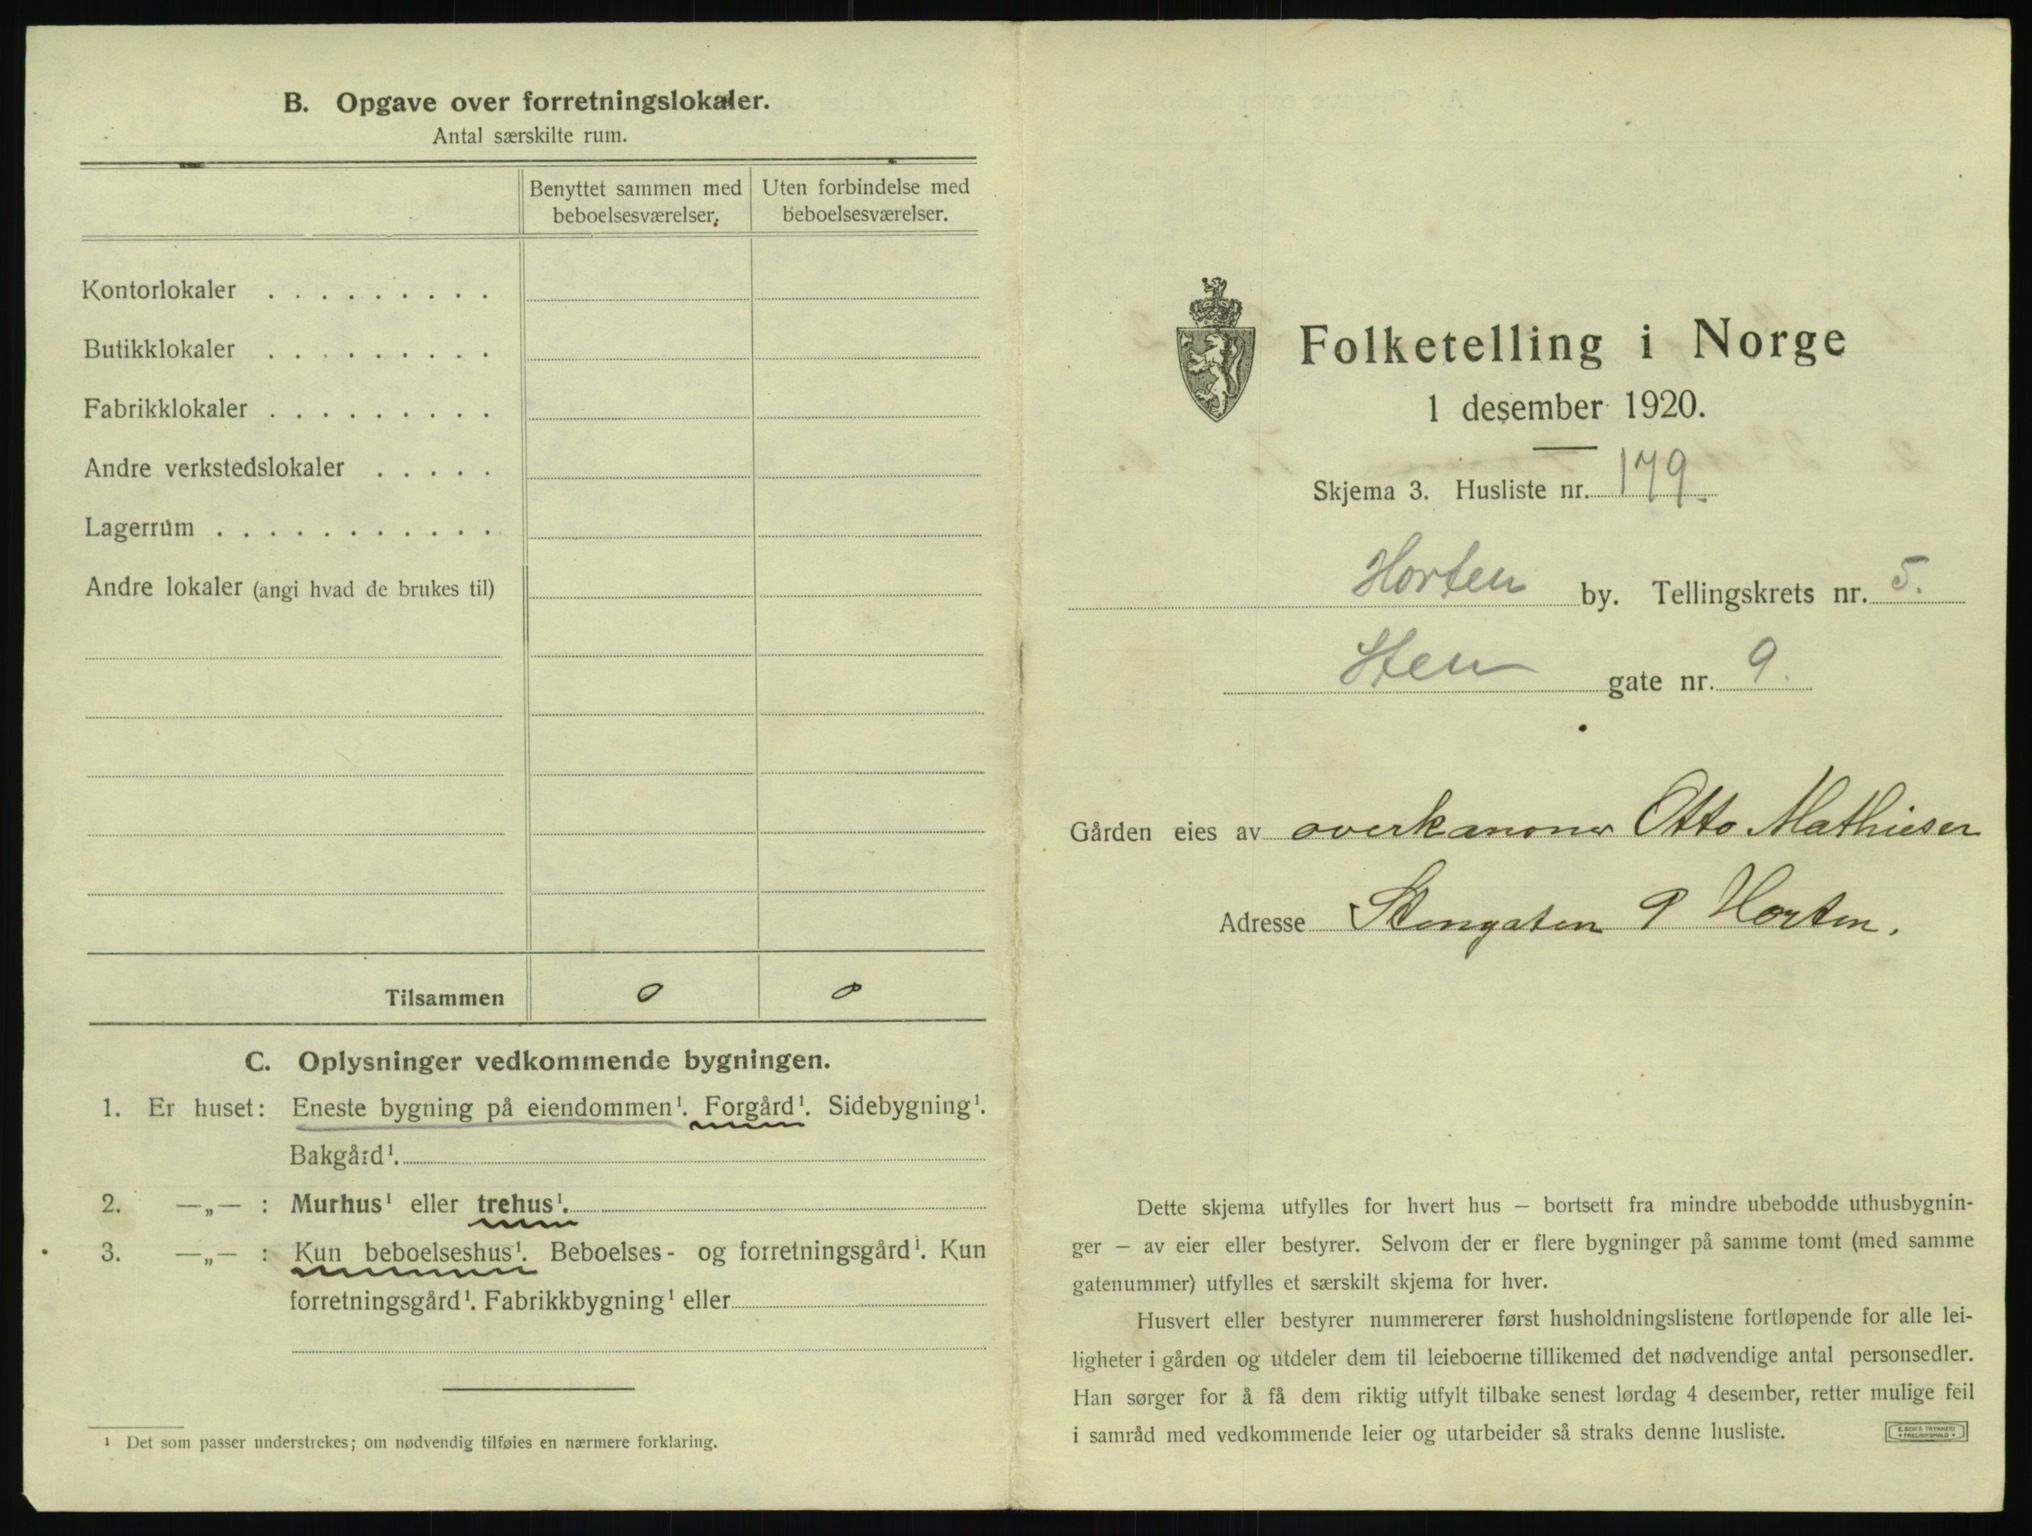 B. Opgave over forretningslokaler.
Antal særskilte rum.
Benyttet sammen med beboelsesværelser.
Uten forbindelse med beboelsesværelser.
Kontorlokaler . . . . . . . . .
Butikklokaler . . . . . . . . .
Fabrikklokaler . . . . . . . . .
Andre verkstedslokaler . . . . .
Lagerrum . . . . . . . . . . .
Andre lokaler (angi hvad de brukes til)
Tilsammen 0 0
C. Oplysninger vedkommende bygningen.
1. Er huset: Eneste bygning på eiendommen¹. Forgård¹. Sidebygning¹.
Bakgård¹.
2. —„— : Murhus¹ eller trehus¹.
3. —„— : Kun beboelseshus¹. Beboelses- og forretningsgård¹. Kun
forretningsgård¹. Fabrikkbygning¹ eller
¹ Det som passer understrekes; om nødvendig tilføies en nærmere forklaring.
Folketelling i Norge
1 desember 1920.
Skjema 3. Husliste nr. 179.
Horten by. Tellingskrets nr. 5.
Sten gate nr. 9.
Gården eies av overkanoner Otto Mathiesen
Adresse Stengaten 9 Horten.
Dette skjema utfylles for hvert hus – bortsett fra mindre ubebodde uthusbygnin-
ger – av eier eller bestyrer. Selvom der er flere bygninger på samme tomt (med samme
gatenummer) utfylles et særskilt skjema for hver.
Husvert eller bestyrer nummererer først husholdningslistene fortløpende for alle lei-
ligheter i gården og utdeler dem til leieboerne tillikemed det nødvendige antal personsedler.
Han sørger for å få dem riktig utfylt tilbake senest lørdag 4 desember, retter mulige feil
i samråd med vedkommende leier og utarbeider så straks denne husliste.
E. SEM'S TRYKKERI
FREDRIKSHALD